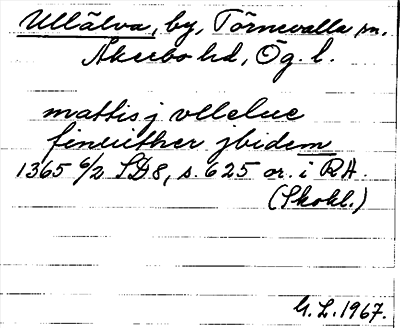 Ullälva, by, Törnevalla sn.
Åkerbo hd, Ög. l.
mattis j vllelue
finuither jbidem
1365 6/2 SD 8, s. 625 or. i RA.
(Skokl.)
G. L. 1967.